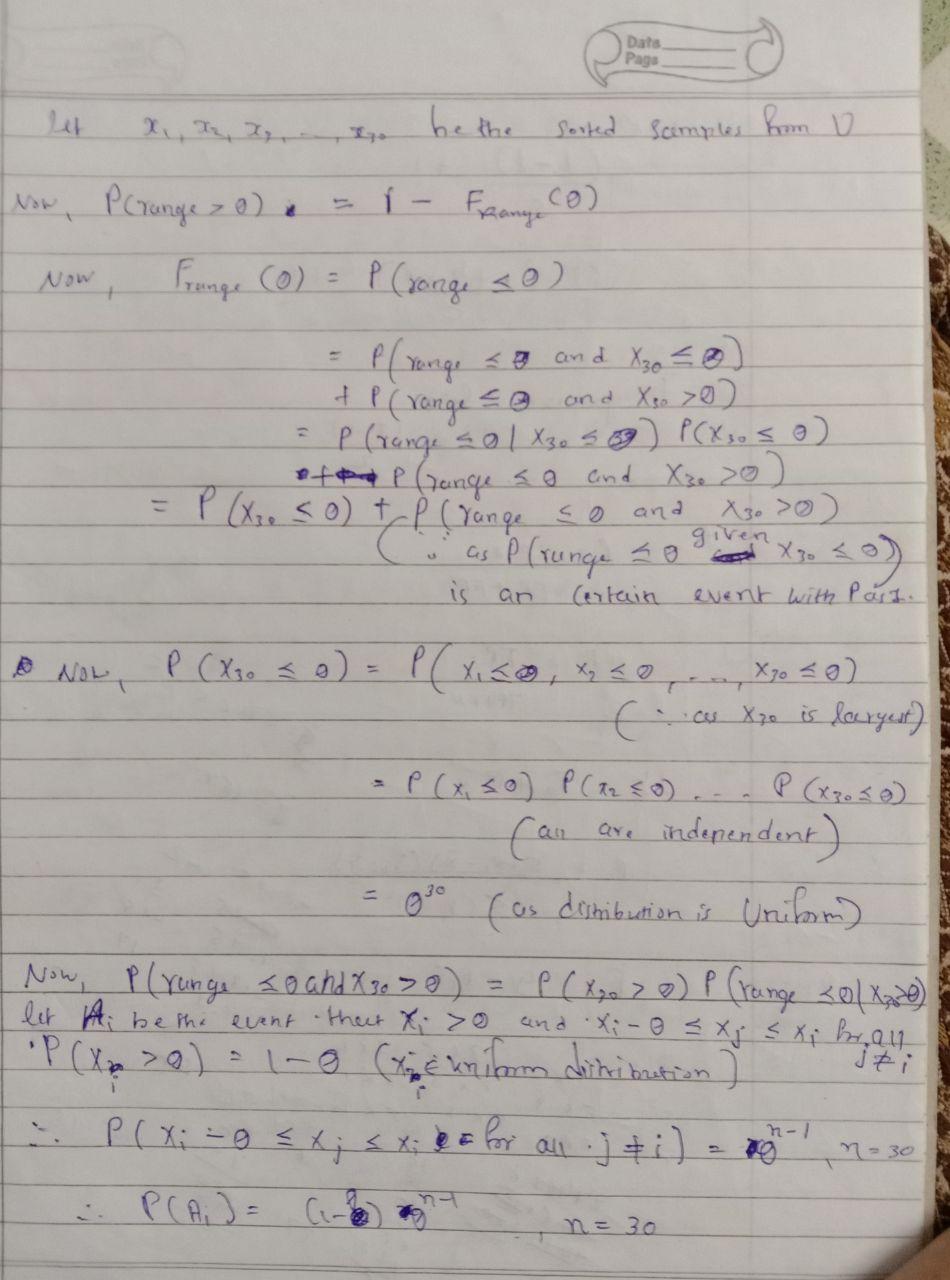 Date
Page
Let x₁, x₂, x₃, ..., x₃₀ be the sorted samples from U
Now, P(range > θ) = 1 - F_Range(θ)
Now, F_range (θ) = P(range ≤ θ)
= P(range ≤ θ and X₃₀ ≤ θ)
+ P(range ≤ θ and X₃₀ > θ)
= P(range ≤ θ | X₃₀ ≤ θ) P(X₃₀ ≤ θ)
+ P(range ≤ θ and X₃₀ > θ)
= P(X₃₀ ≤ θ) + P(range ≤ θ and X₃₀ > θ)
(∵ as P(range ≤ θ given X₃₀ ≤ θ)
is an certain event with P as 1.
Now, P(X₃₀ ≤ θ) = P(X₁ ≤ θ, X₂ ≤ θ, ..., X₃₀ ≤ θ)
(∵ as X₃₀ is largest)
= P(x₁ ≤ θ) P(x₂ ≤ θ) ... P(X₃₀ ≤ θ)
(all are independent)
= θ³⁰ (as distribution is Uniform)
Now, P(range ≤ θ and X₃₀ > θ) = P(X₃₀ > θ) P(range ≤ θ | X₃₀ > θ)
let Aᵢ be the event that Xᵢ > θ and Xᵢ - θ ≤ Xⱼ ≤ Xᵢ for all j ≠ i
P(Xᵢ > θ) = 1 - θ (Xᵢ ∈ uniform distribution)
∴ P(Xᵢ - θ ≤ Xⱼ ≤ Xᵢ for all j ≠ i) = θⁿ⁻¹, n = 30
∴ P(Aᵢ) = (1-θ) θⁿ⁻¹, n = 30